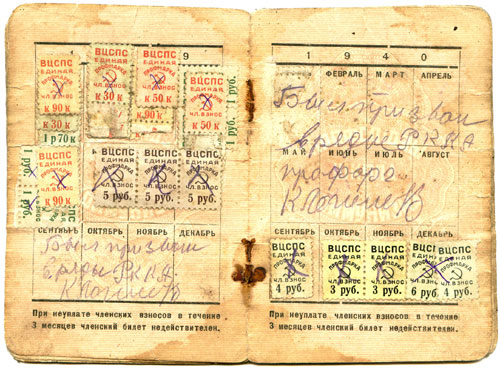 9
ВЦСПС ЕДИНАЯ ПРОФМАРКА ЧЛ. ВЗНОС К 90 К
К 30 К
1 р 70 к
К 90 К
ВЦСПС ЕДИНАЯ ПРОФМАРКА ЧЛ. ВЗНОС К 30 К
ВЦСПС ЕДИНАЯ ПРОФМАРКА ЧЛ. ВЗНОС К 50 К
К 90 К
ВЦСПС ЕДИНАЯ ПРОФМАРКА ЧЛ. ВЗНОС К 50 К
1 руб.
1 руб.
1 руб.
1 руб.
ВЦСПС ЕДИНАЯ ПРОФМАРКА ЧЛ. ВЗНОС 5 руб.
ВЦСПС ЕДИНАЯ ПРОФМАРКА ЧЛ. ВЗНОС 5 руб.
ВЦСПС ЕДИНАЯ ПРОФМАРКА ЧЛ. ВЗНОС 5 руб.
СЕНТЯБРЬ ОКТЯБРЬ НОЯБРЬ ДЕКАБРЬ
Был призван
в ряды РККА
При неуплате членских взносов в течение
3 месяцев членский билет недействителен.
1 9 4 0
ФЕВРАЛЬ МАРТ АПРЕЛЬ
Был призван
в ряды РККА
МАЙ ИЮНЬ ИЮЛЬ АВГУСТ
профорг
СЕНТЯБРЬ ОКТЯБРЬ НОЯБРЬ ДЕКАБРЬ
ВЦСПС ЕДИНАЯ ПРОФМАРКА ЧЛ. ВЗНОС 4 руб.
ВЦСПС ЕДИНАЯ ПРОФМАРКА ЧЛ. ВЗНОС 3 руб.
ВЦСПС ЕДИНАЯ ПРОФМАРКА ЧЛ. ВЗНОС 3 руб.
ВЦСПС ЕДИНАЯ ПРОФМАРКА ЧЛ. ВЗНОС 6 руб.
ВЦСПС ЕДИНАЯ ПРОФМАРКА ЧЛ. ВЗНОС 4 руб.
При неуплате членских взносов в течение
3 месяцев членский билет недействителен.